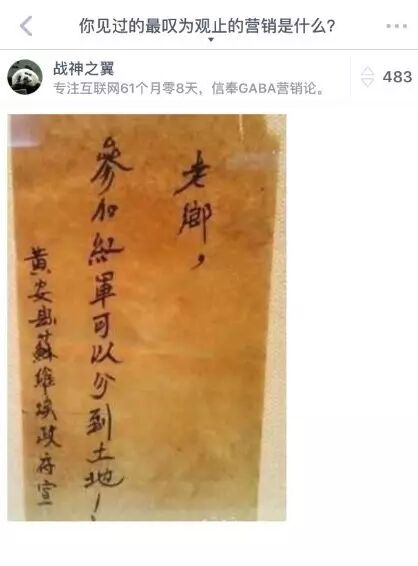 你见过的最叹为观止的营销是什么?
战神之翼
专注互联网61个月零8天，信奉GABA营销论。
483
老鄉，
參加紅軍可以分到土地！
黄安县蘇維埃政府宣